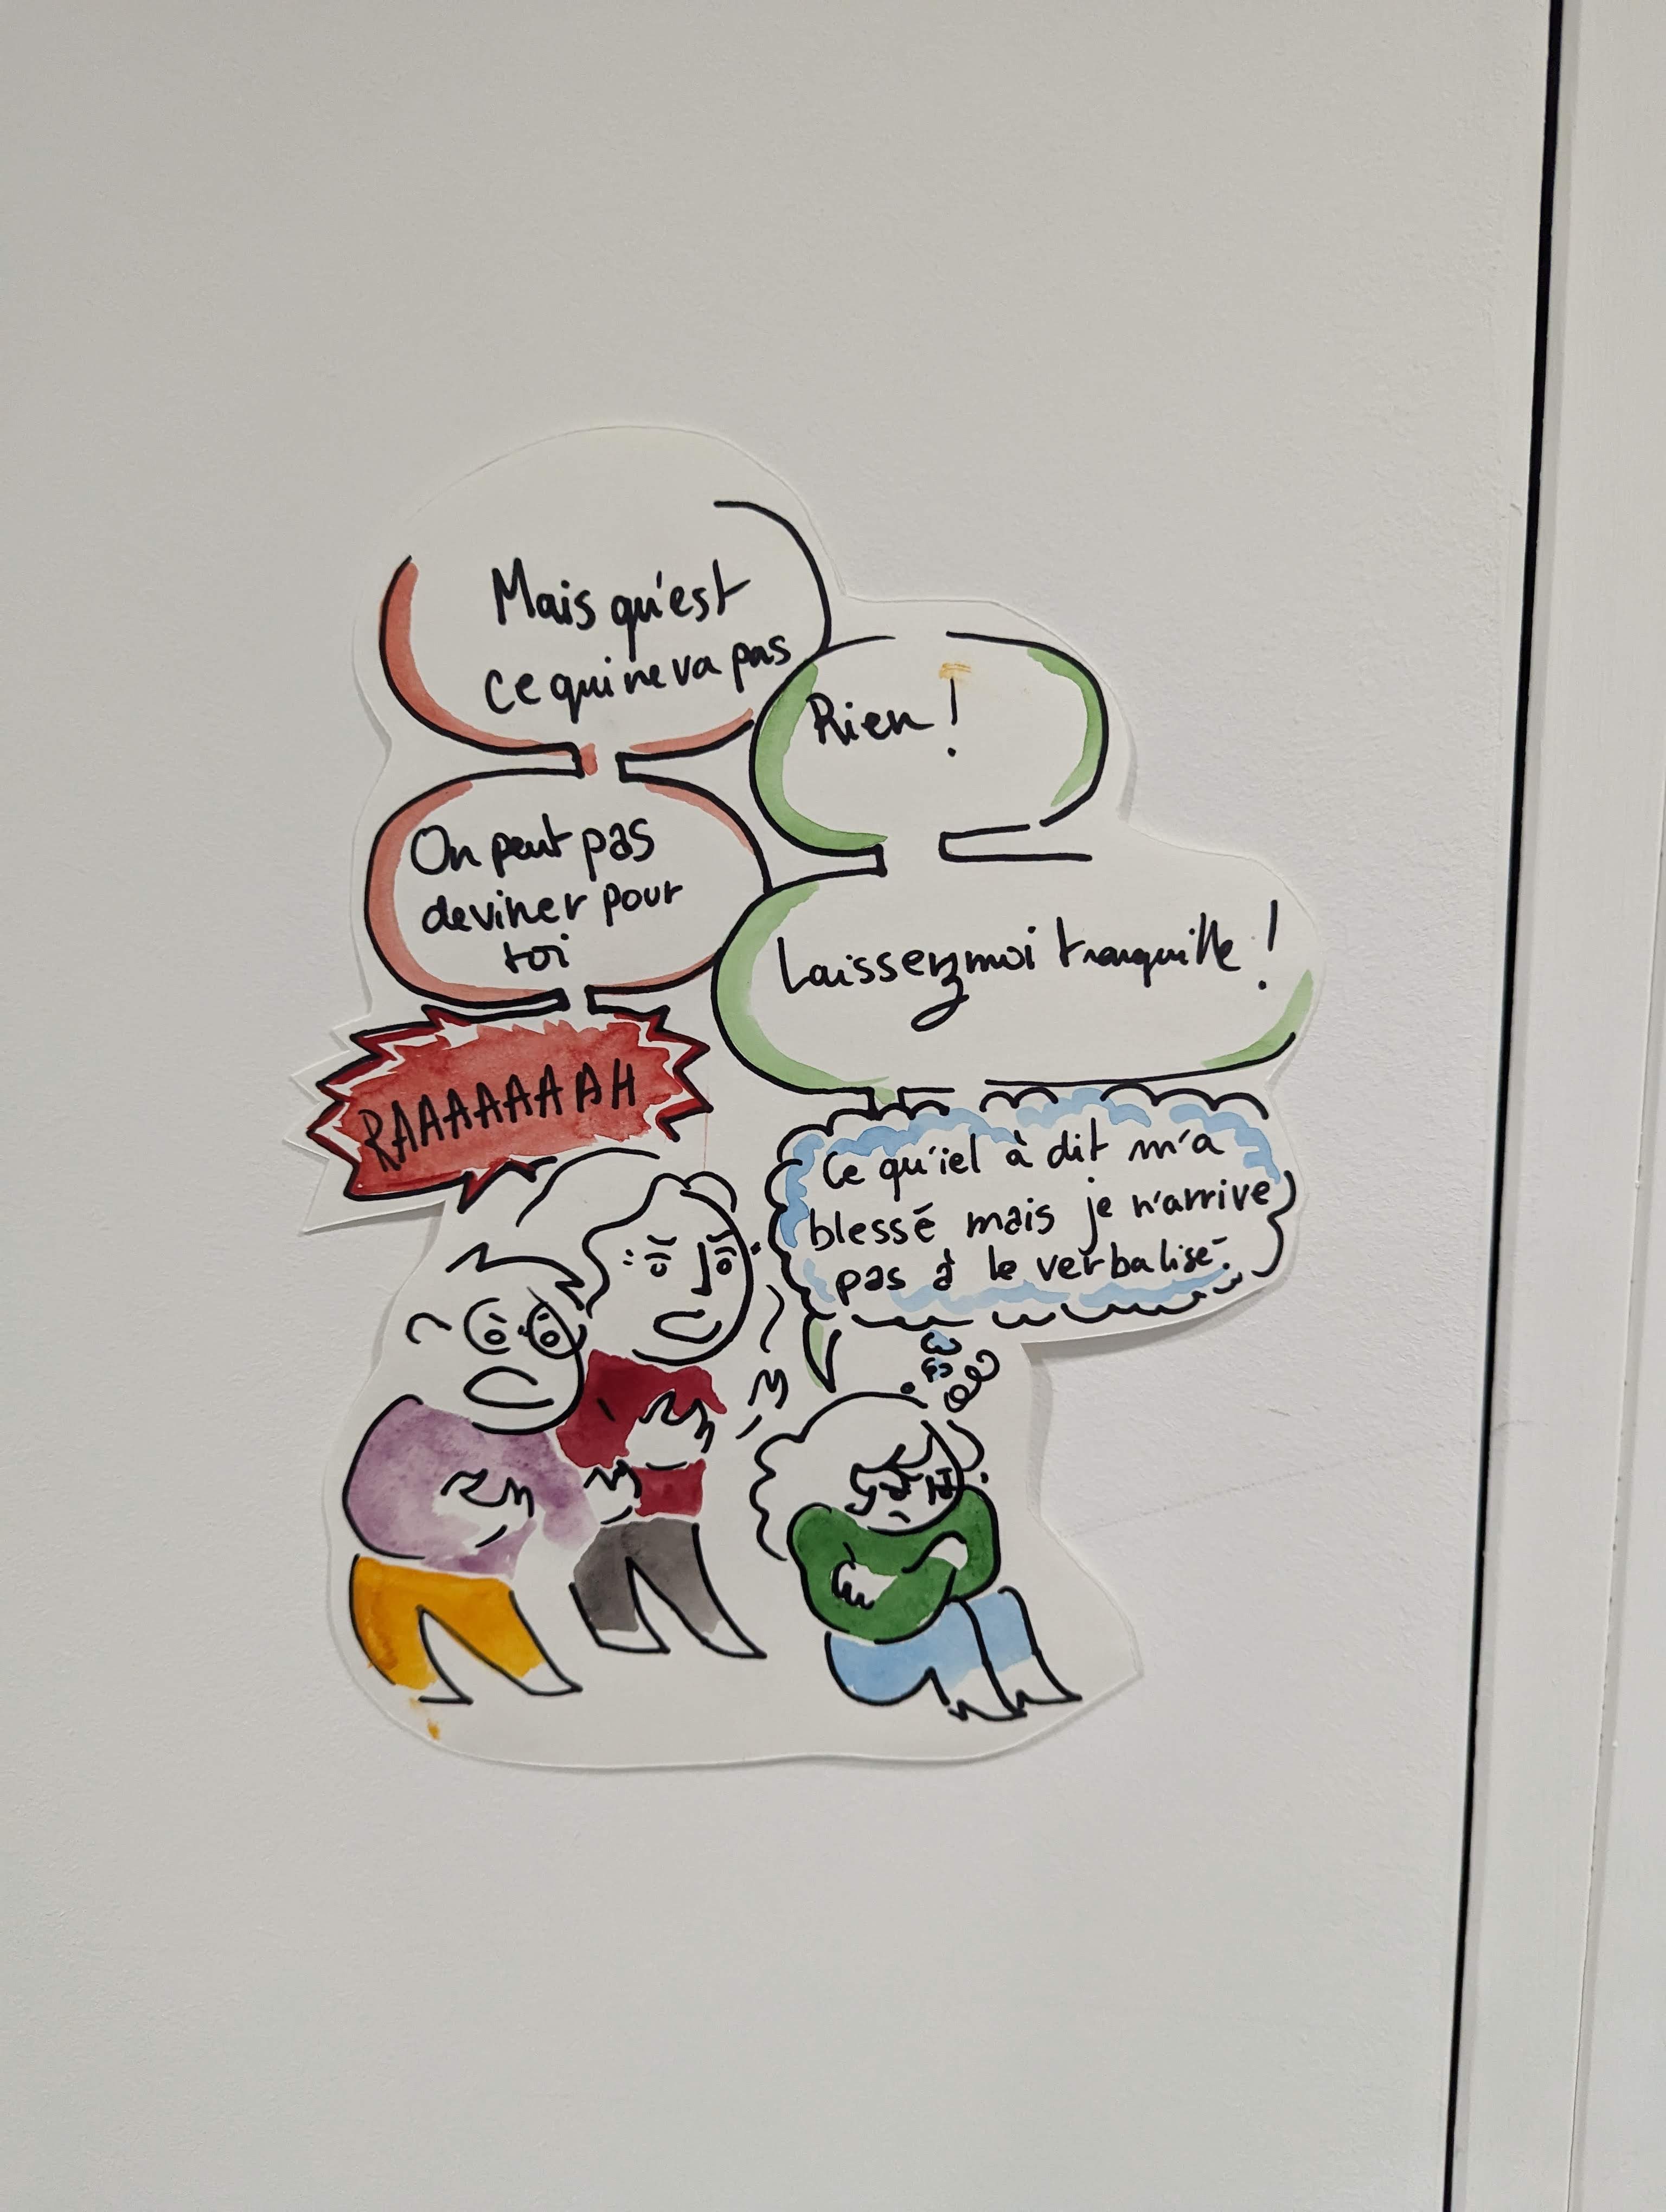 Mais qu'est
ce qui ne va pas
Rien !
On peut pas
deviner pour
toi
Laissez moi tranquille !
RAAAAAAAH
Ce qu'iel à dit m'a
blessé mais je n'arrive
pas à le verbalisé.